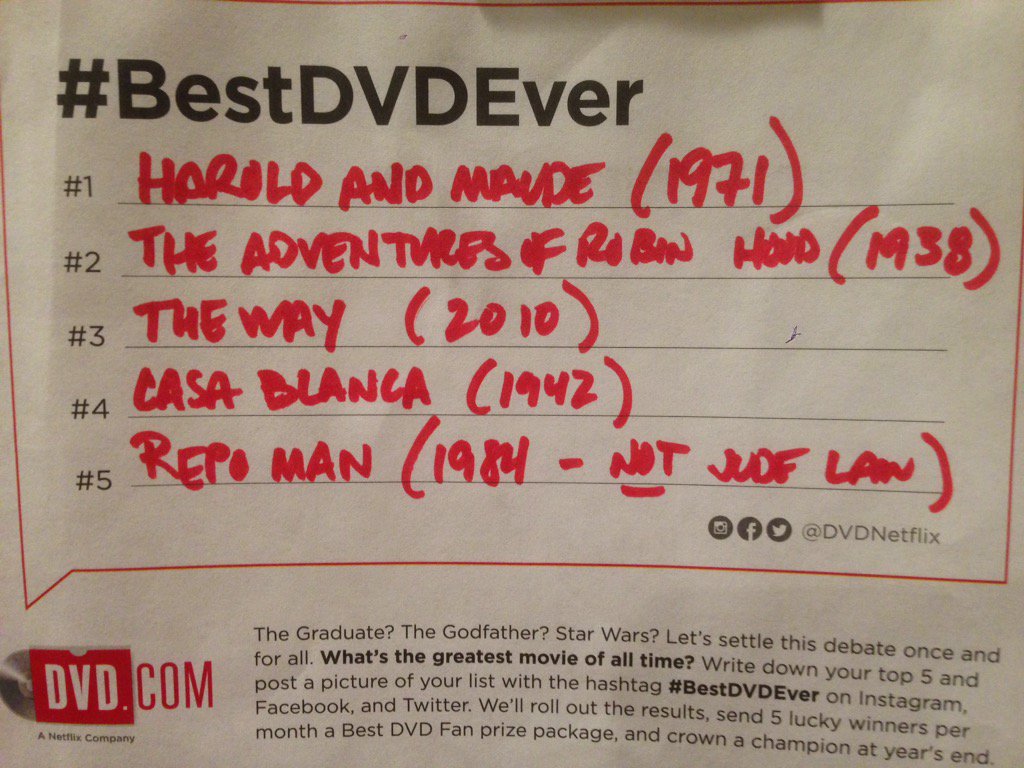 #BestDVDEver
#1 HAROLD AND MAUDE (1971)
#2 THE ADVENTURES OF ROBIN HOOD (1938)
#3 THE WAY (2010)
#4 CASA BLANCA (1942)
#5 REPO MAN (1984 - NOT JUDE LAW)
@DVDNetflix
The Graduate? The Godfather? Star Wars? Let's settle this debate once and
for all. What's the greatest movie of all time? Write down your top 5 and
post a picture of your list with the hashtag #BestDVDEver on Instagram,
Facebook, and Twitter. We'll roll out the results, send 5 lucky winners per
month a Best DVD Fan prize package, and crown a champion at year's end.
DVD.COM
A Netflix Company